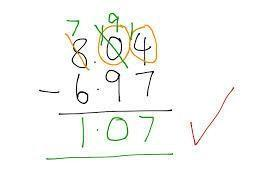 7 9 1
8.04
- 6.97
1.07